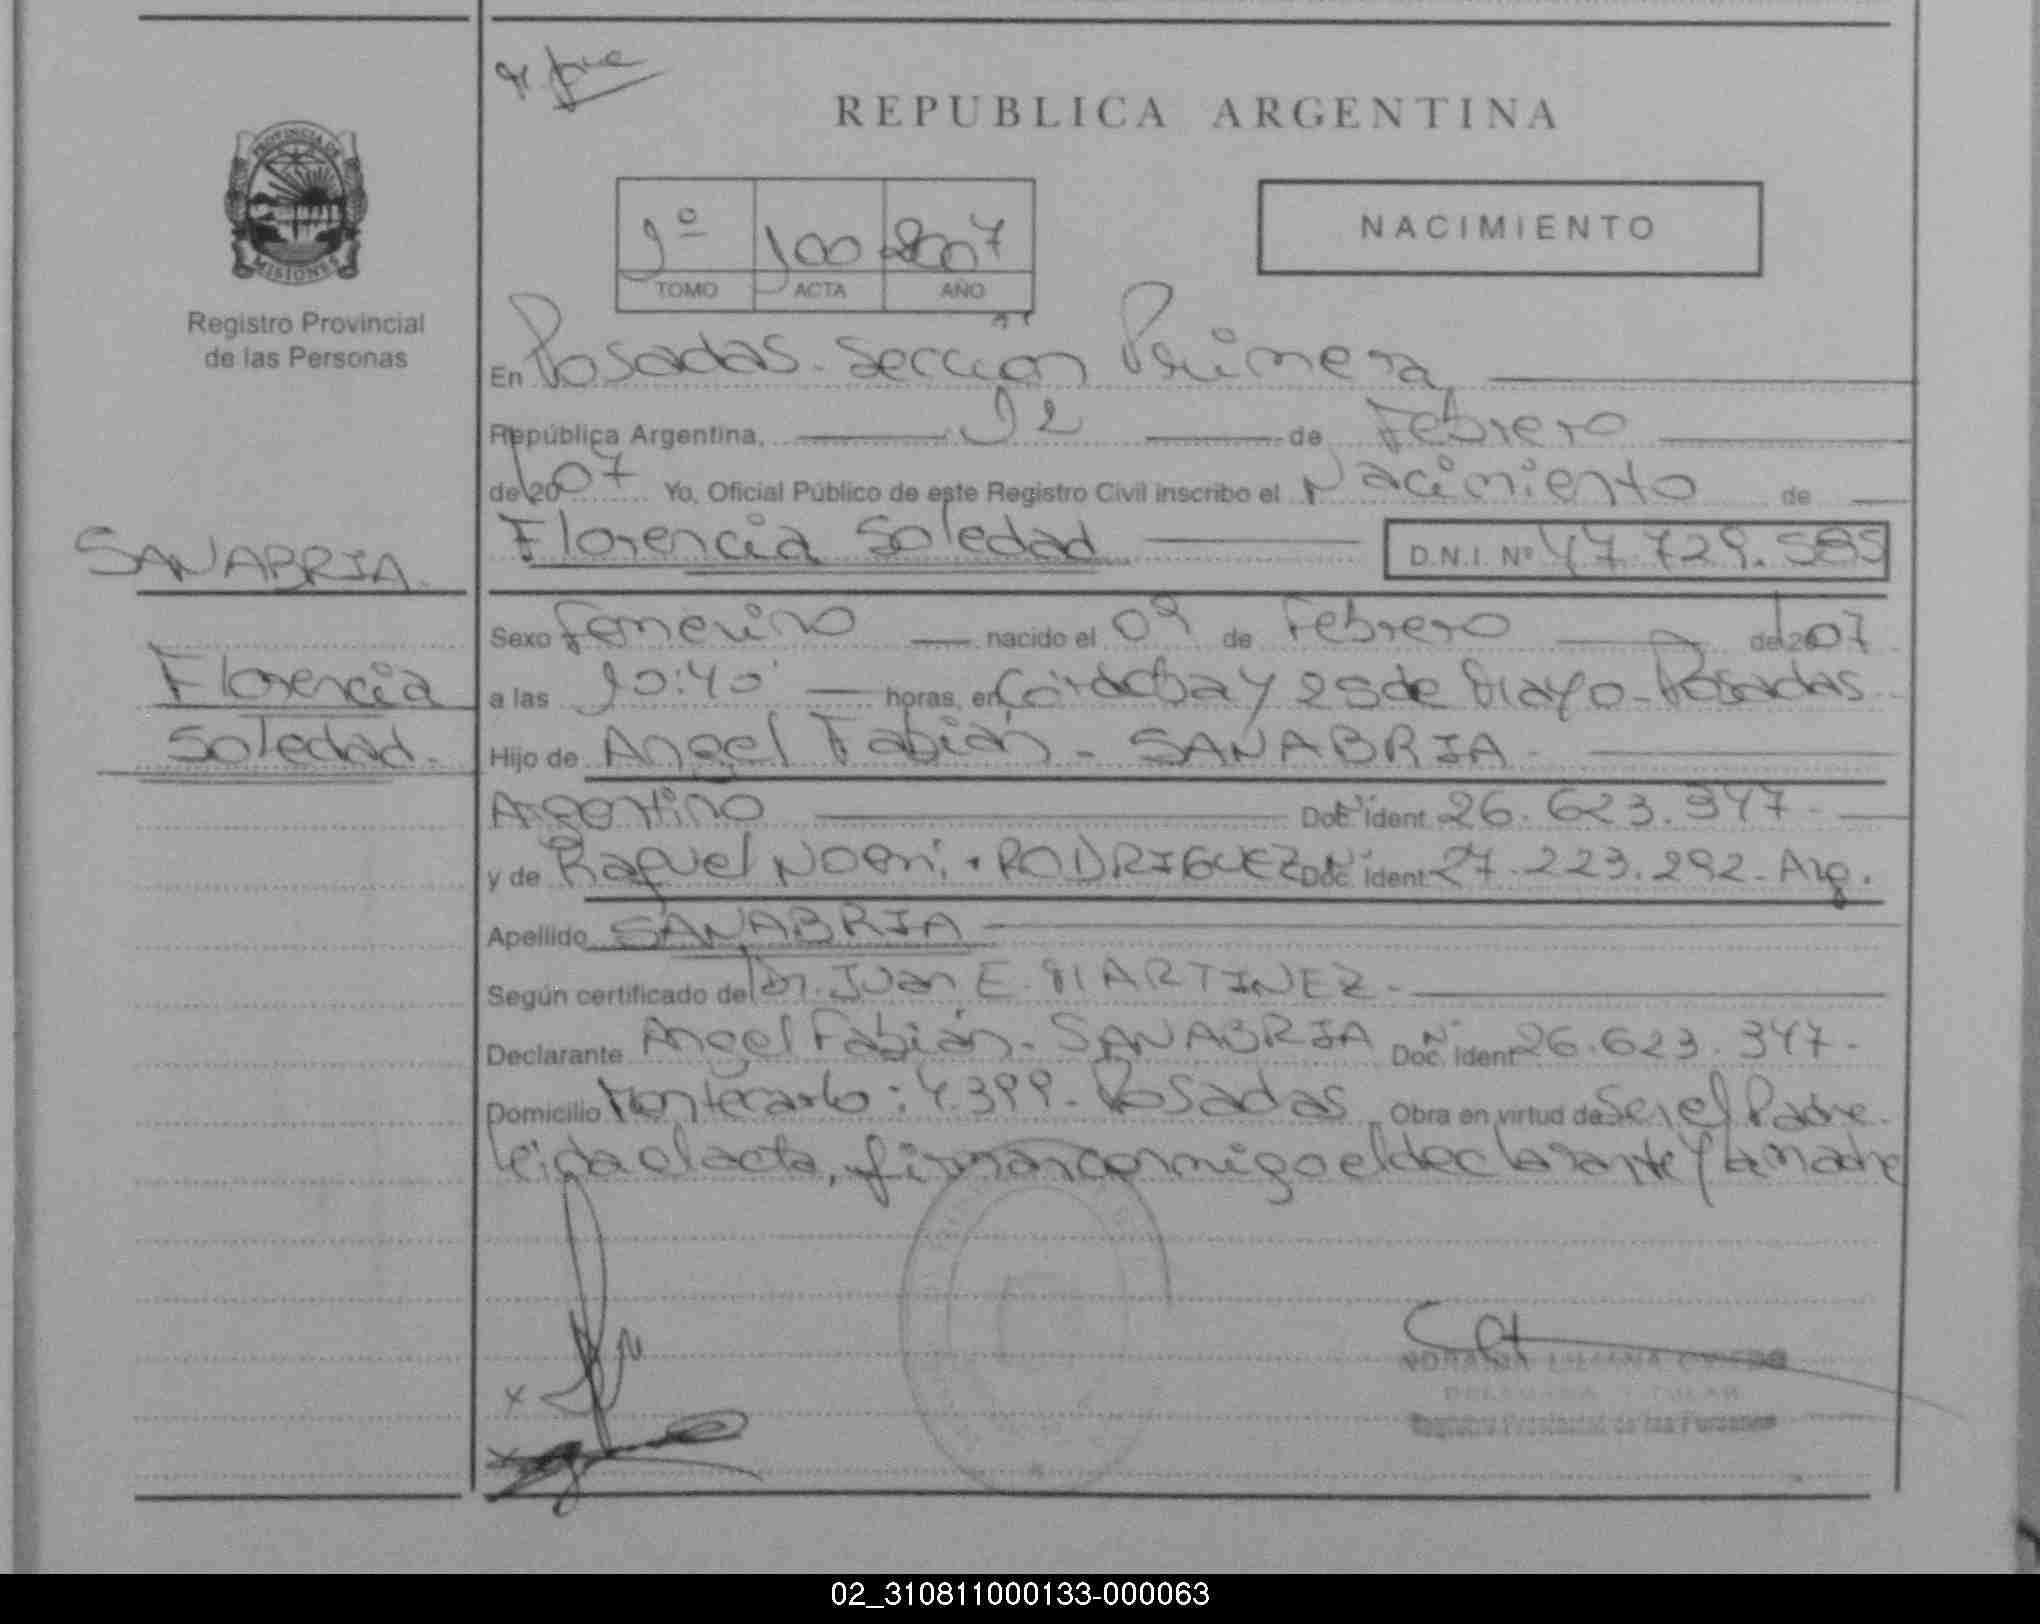 REPUBLICA ARGENTINA
PROVINCIA DE
MISIONES
Registro Provincial
de las Personas
1º 100 2007
TOMO ACTA AÑO
NACIMIENTO
En Posadas. Sección Primera
República Argentina, 12 de Febrero
de 2007 Yo, Oficial Público de este Registro Civil inscribo el Nacimiento de
Florencia Soledad D.N.I. Nº 47.729.585
SANABRIA.
Florencia
Soledad.
Sexo femenino nacido el 09 de Febrero de 2007
a las 10:40 horas, en Córdoba y 25 de Mayo - Posadas
Hijo de Angel Fabián - SANABRIA -
Argentino Doc. ident. 26.623.347 -
y de Raquel Noemí. RODRIGUEZ Doc. ident. 27.223.292 - Arg.
Apellido SANABRIA
Según certificado del Dr. Juan E. MARTINEZ -
Declarante Angel Fabián - SANABRIA Doc. ident. 26.623.347 -
Domicilio Montecarlo: 4.399 - Posadas Obra en virtud de Ser el Padre.
leída el acta, firman conmigo el declarante y la madre
Registro Provincial de las Personas
02_310811000133-000063